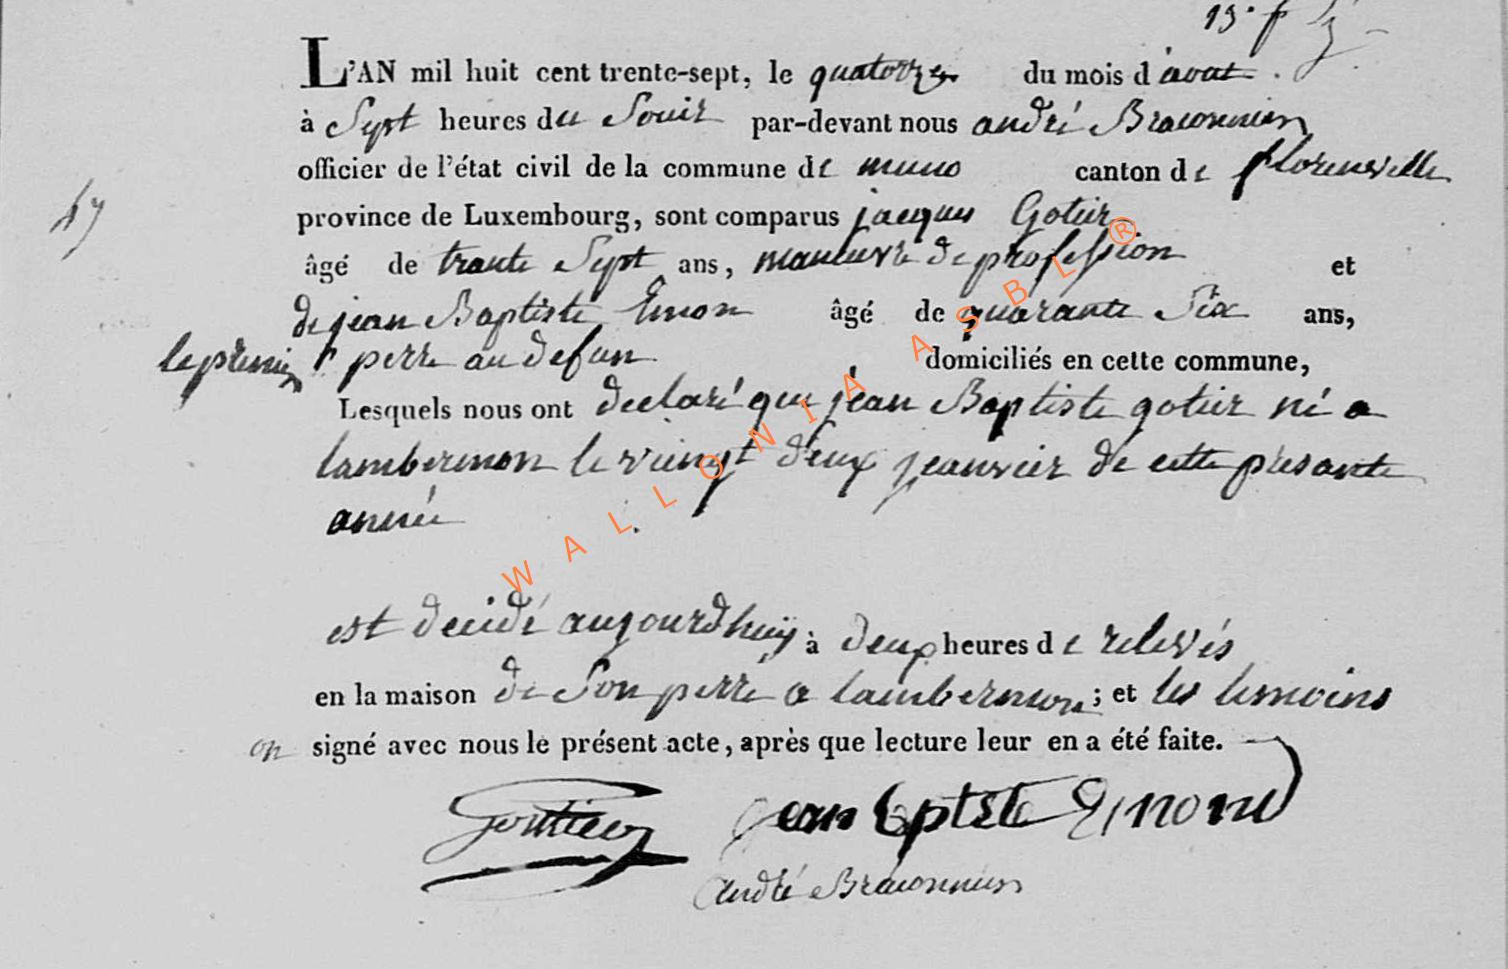 L'AN mil huit cent trente-sept, le quatorze du mois d'avout.
à Sept heures du Souir par-devant nous andré Braconnier
officier de l'état civil de la commune de muno canton de florenville
47
province de Luxembourg, sont comparus jacques Gotier
âgé de trante Sept ans, maneuvre de profession et
de jean Baptiste Emon âgé de quarante Six ans,
le premier perre au defun domiciliés en cette commune,
Lesquels nous ont declaré que jean Baptiste gotier né a
lambermon le viengt deux jeanvier de cette présante
année
est decidé aujourdhuij à deux heures de relevés
en la maison de Son perre a lambermon ; et les temoins
on signé avec nous le présent acte, après que lecture leur en a été faite.
Goutier jean baptste Emond
andré Braconnier
WALLONIA ASBL®